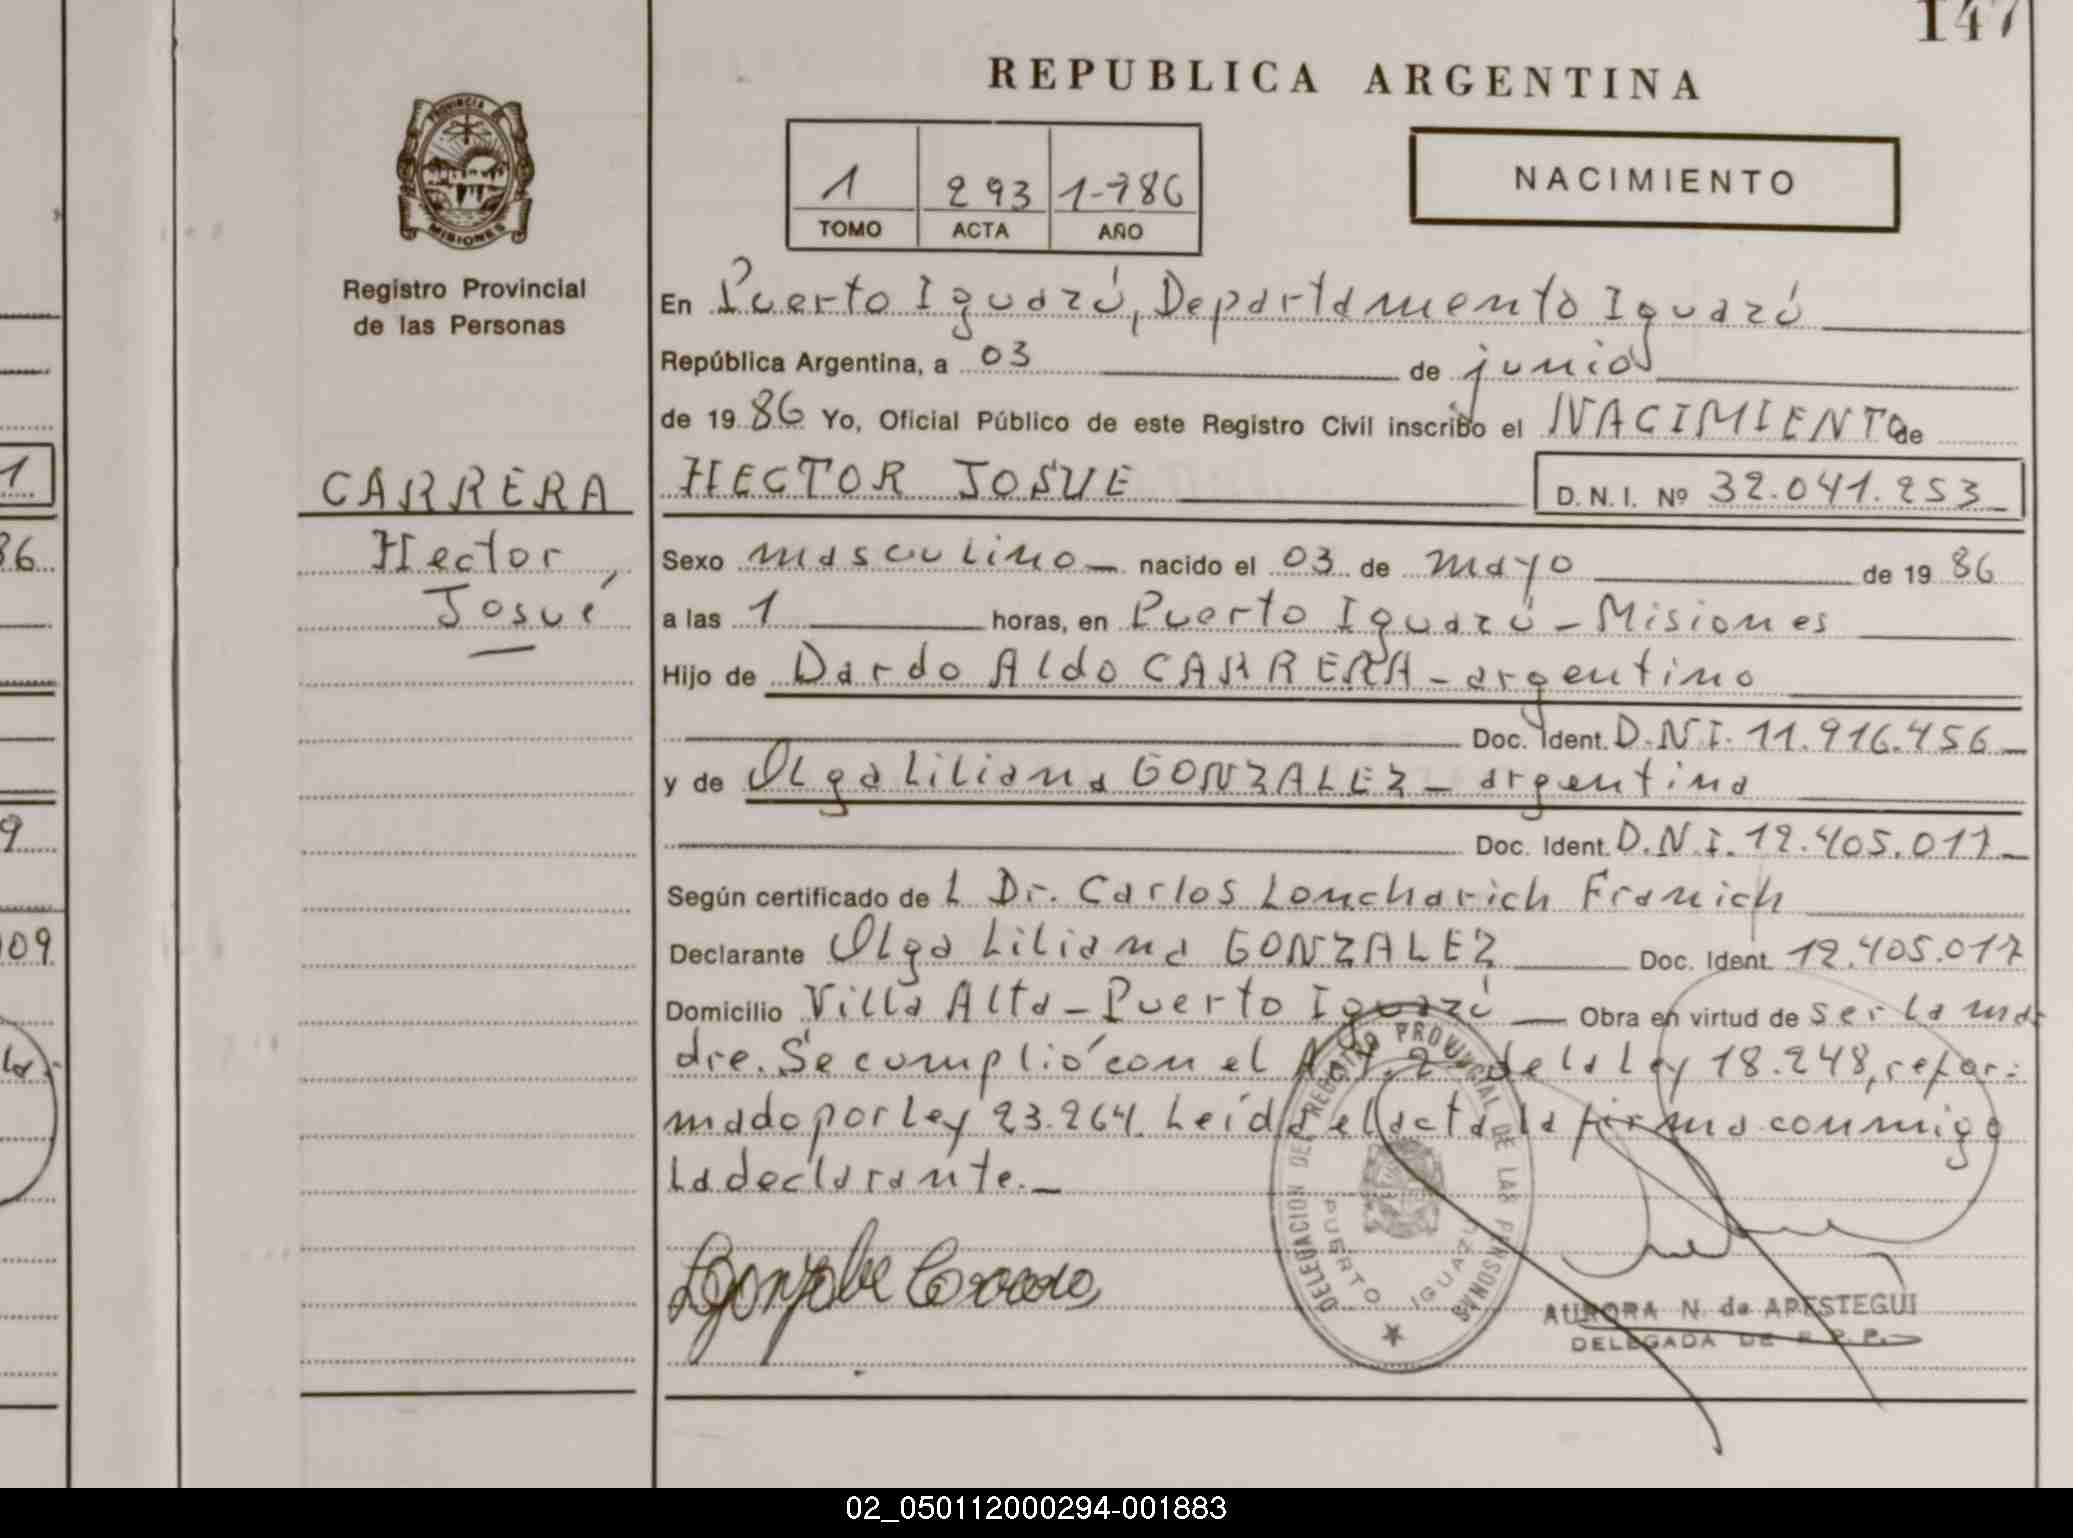 147
REPUBLICA ARGENTINA
PROVINCIA DE
MISIONES
Registro Provincial
de las Personas
1 293 1-986
TOMO ACTA AÑO
NACIMIENTO
En Puerto Iguazú, Departamento Iguazú
República Argentina, a 03 de junio
de 1986 Yo, Oficial Público de este Registro Civil inscribo el NACIMIENTO de
CARRERA
Hector
Josué
HECTOR JOSUE D.N.I. Nº 32.041.253
Sexo masculino nacido el 03 de mayo de 1986
a las 1 horas, en Puerto Iguazú - Misiones
Hijo de Dardo Aldo CARRERA - argentino
Doc. Ident. D.N.I. 11.916.456
y de Olga Liliana GONZALEZ - argentina
Doc. Ident. D.N.I. 12.405.017
Según certificado de L Dr. Carlos Loncharich Franich
Declarante Olga Liliana GONZALEZ Doc. Ident. 12.405.017
Domicilio Villa Alta - Puerto Iguazú Obra en virtud de ser la ma-
dre. Se cumplió con el Art. 2 de la Ley 18.248, refor-
mado por Ley 23.264. Leída el acta la firma conmigo
la declarante.
DELEGACION DEL REGISTRO PROVINCIAL DE LAS PERSONAS
PUERTO IGUAZU
AURORA N. de APESTEGUI
DELEGADA DE R.P.P.
1
86
9
109
la-
02_050112000294-001883